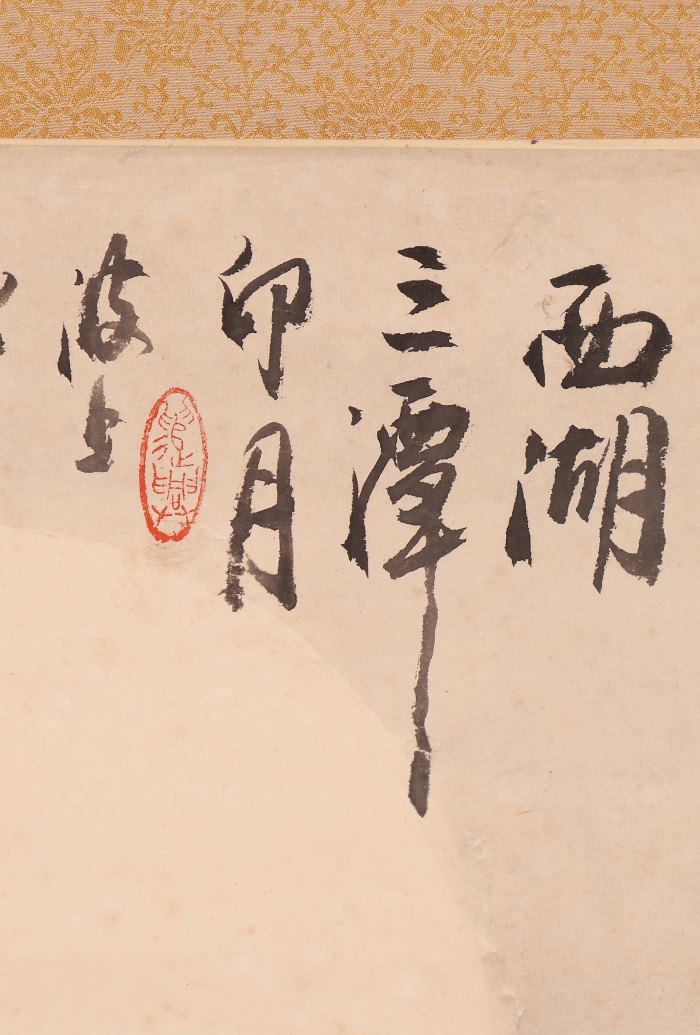 西湖
三潭
印月
波上